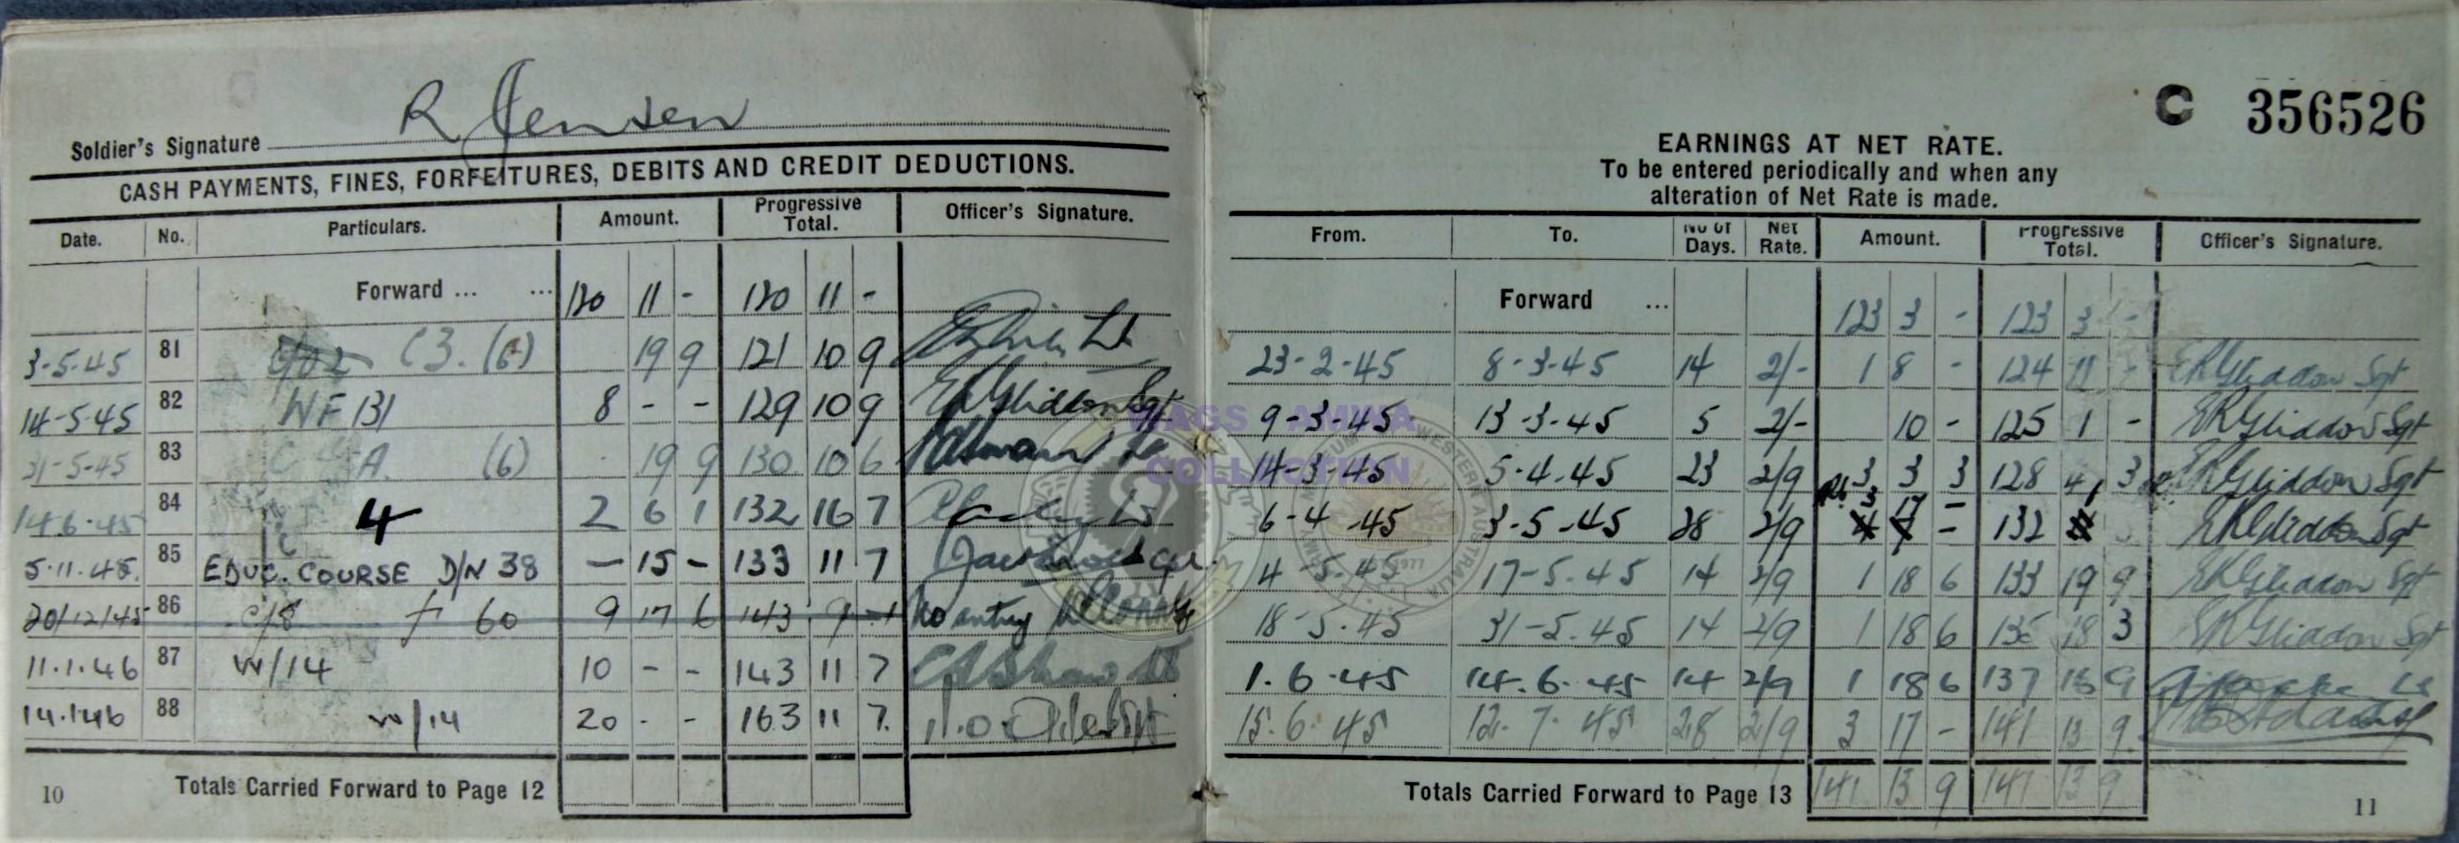 Soldier's Signature R Jensen
CASH PAYMENTS, FINES, FORFEITURES, DEBITS AND CREDIT DEDUCTIONS.
Date. No. Particulars. Amount. Progressive Total. Officer's Signature.
Forward ... ... 120 11 - 120 11 -
3-5-45 81 C3. (6) 19 9 121 10 9 Lt
14-5-45 82 WF 131 8 - - 129 10 9 ERGliddon Sgt
31-5-45 83 A. (6) 19 9 130 10 6
14.6.45 84 4 2 6 1 132 16 7
5.11.45. 85 EDUC. COURSE D/N 38 - 15 - 133 11 7
20/12/45 86 c/8 f 60 9 17 6 143 9 1 No entry
11.1.46 87 W/14 10 - - 143 11 7 Lt
14.1.46 88 W/14 20 - - 163 11 7.
Totals Carried Forward to Page 12
10
C 356526
EARNINGS AT NET RATE.
To be entered periodically and when any
alteration of Net Rate is made.
From. To. No of Days. Net Rate. Amount. Progressive Total. Officer's Signature.
Forward ... 123 3 - 123 3 -
23-2-45 8-3-45 14 2/- 1 8 - 124 11 - ERGliddon Sgt
9-3-45 13-3-45 5 2/- 10 - 125 1 - ERGliddon Sgt
14-3-45 5-4-45 23 2/9 3 3 3 128 4 3 ERGliddon Sgt
6-4-45 3-5-45 28 2/9 3 17 - 132 1 ERGliddon Sgt
4-5-45 17-5-45 14 2/9 1 18 6 133 19 9 ERGliddon Sgt
18-5-45 31-5-45 14 2/9 1 18 6 135 18 3 ERGliddon Sgt
1.6.45 14.6.45 14 2/9 1 18 6 137 16 9
15.6.45 12.7.45 28 2/9 3 17 - 141 13 9
Totals Carried Forward to Page 13 141 13 9 141 13 9
11
WAGS AMWA
COLLECTION